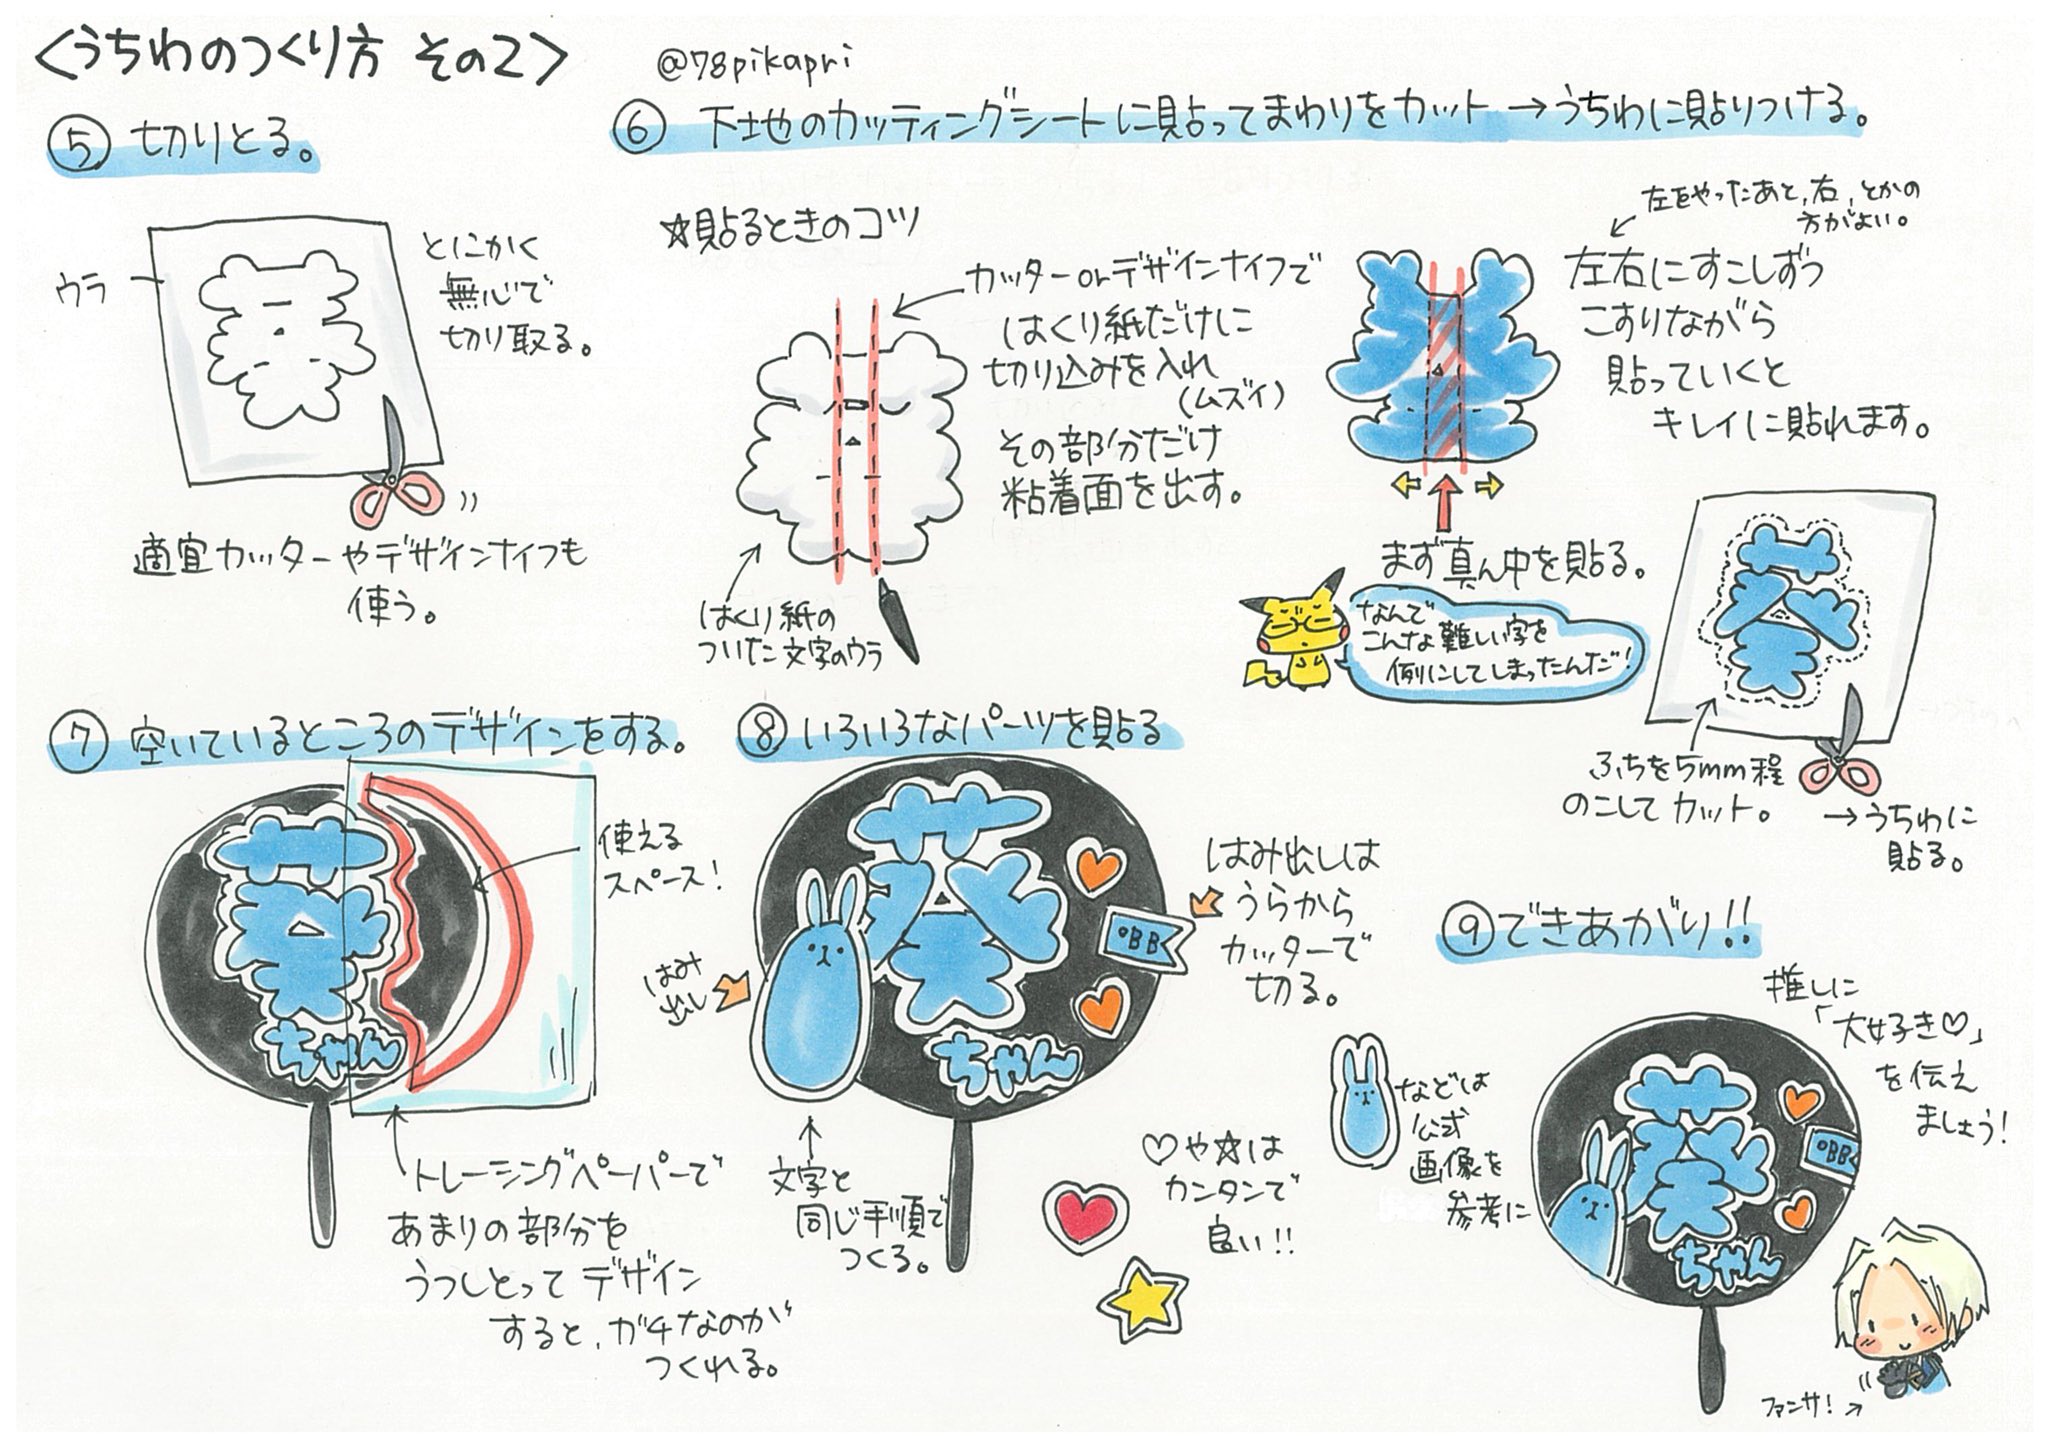 <うちわのつくり方 その2>
@78pikapri
⑤ 切りとる。
ウラ
とにかく
無心で
切り取る。
適宜カッターやデザインナイフも
使う。
⑥ 下地のカッティングシートに貼ってまわりをカット→うちわに貼りつける。
☆貼るときのコツ
カッターorデザインナイフで
はくり紙だけに
切り込みを入れ
(ムズイ)
その部分だけ
粘着面を出す。
はくり紙の
ついた文字のウラ
左をやったあと,右,とかの
方がよい。
左右にすこしずつ
こすりながら
貼っていくと
キレイに貼れます。
まず真ん中を貼る。
なんで
こんな難しい字を
例にしてしまったんだ!
葵
ふちを5mm程
のこしてカット。
→うちわに
貼る。
⑦ 空いているところのデザインをする。
葵
ちゃん
使える
スペース!
トレーシングペーパーで
あまりの部分を
うつしとってデザイン
すると、ガチなのが
つくれる。
⑧ いろいろなパーツを貼る
葵
ちゃん
°BB
はみ
出し
はみ出しは
うらから
カッターで
切る。
文字と
同じ手順で
つくる。
♡や☆は
カンタンで
良い!!
⑨できあがり!!
推しに
「大好き♡」
を伝え
ましょう!
などは
公式
画像を
参考に
葵
ちゃん
°BB
ファンサ!